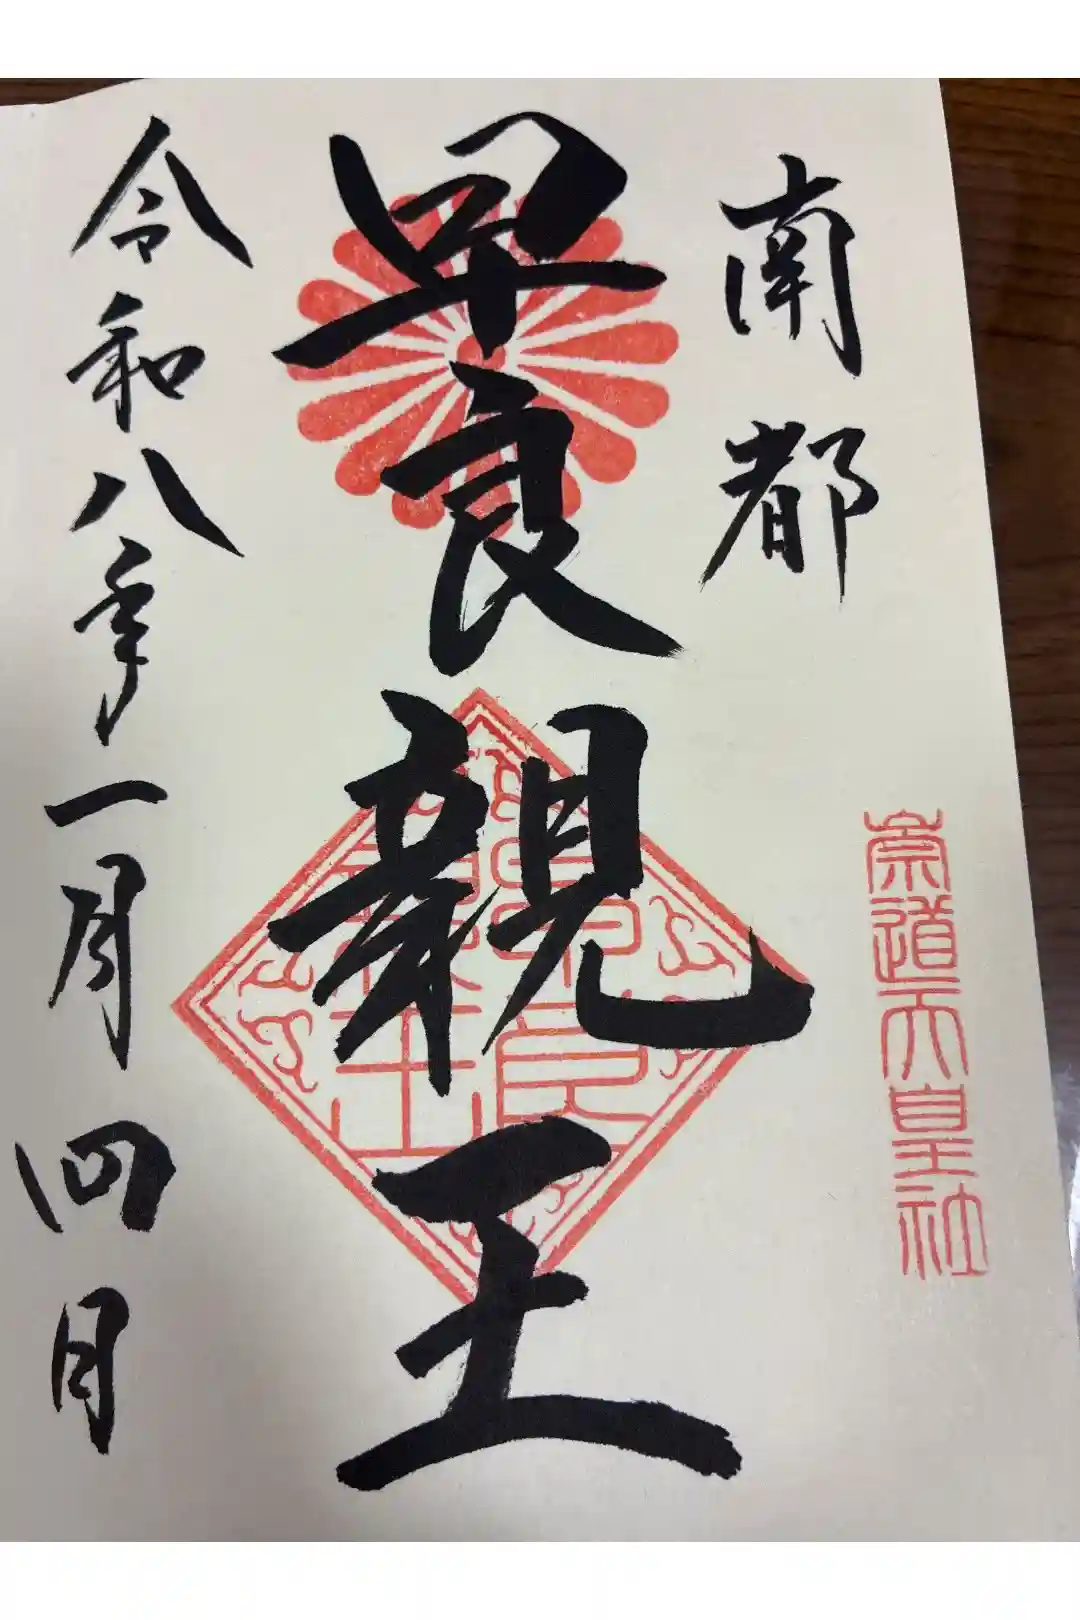 南都
崇道天皇社
早良親王
早良親王
令和八年一月四日